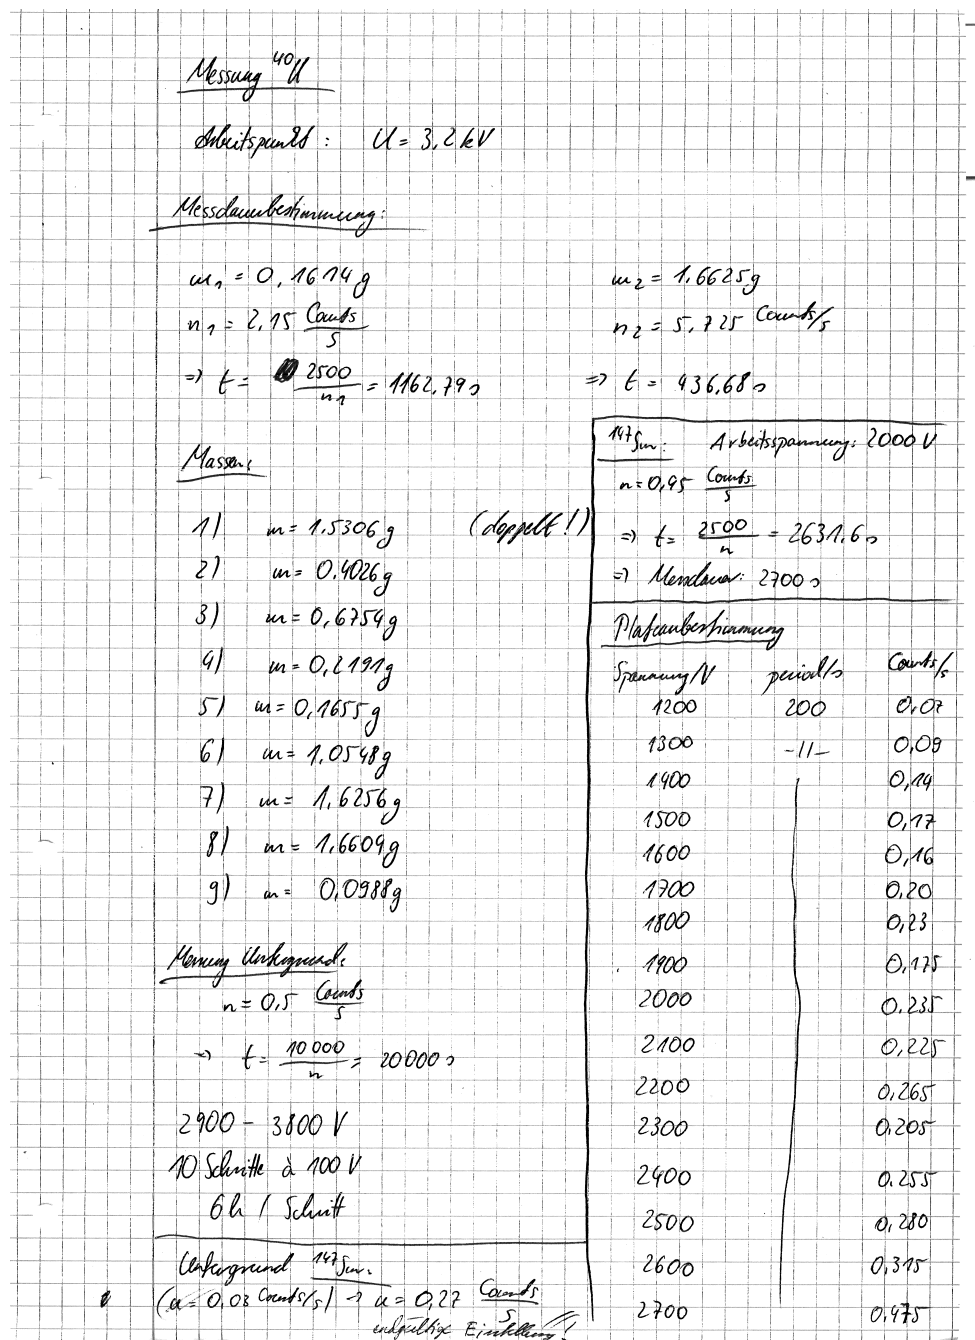 Messung ⁴⁰K
Arbeitspunkt: U = 3,2 kV
Messdauerbestimmung:
m₁ = 0,1614 g
n₁ = 2,15 Counts/s
⇒ t = 2500/n₁ = 1162,79 s
m₂ = 1,6625 g
n₂ = 5,725 Counts/s
⇒ t = 436,68 s
Massen:
1) m = 1,5306 g (doppelt!)
2) m = 0,4026 g
3) m = 0,6754 g
4) m = 0,2191 g
5) m = 0,1655 g
6) m = 1,0548 g
7) m = 1,6256 g
8) m = 1,6609 g
9) m = 0,0988 g
Messung Untergrund:
n = 0,5 Counts/s
⇒ t = 10 000/n = 20000 s
2900 - 3800 V
10 Schritte à 100 V
6h / Schritt
Untergrund ¹⁴⁷Sm:
(n = 0,03 Counts/s) → n = 0,27 Counts/s
endgültige Einstellung!
¹⁴⁷Sm: Arbeitsspannung: 2000 V
n = 0,95 Counts/s
⇒ t = 2500/n = 2631,6 s
⇒ Messdauer: 2700 s
Plateaubestimmung
Spannung/V period/s Counts/s
1200 200 0,07
1300 -11- 0,09
1400 0,14
1500 0,17
1600 0,16
1700 0,20
1800 0,23
1900 0,175
2000 0,235
2100 0,225
2200 0,265
2300 0,205
2400 0,255
2500 0,280
2600 0,315
2700 0,475